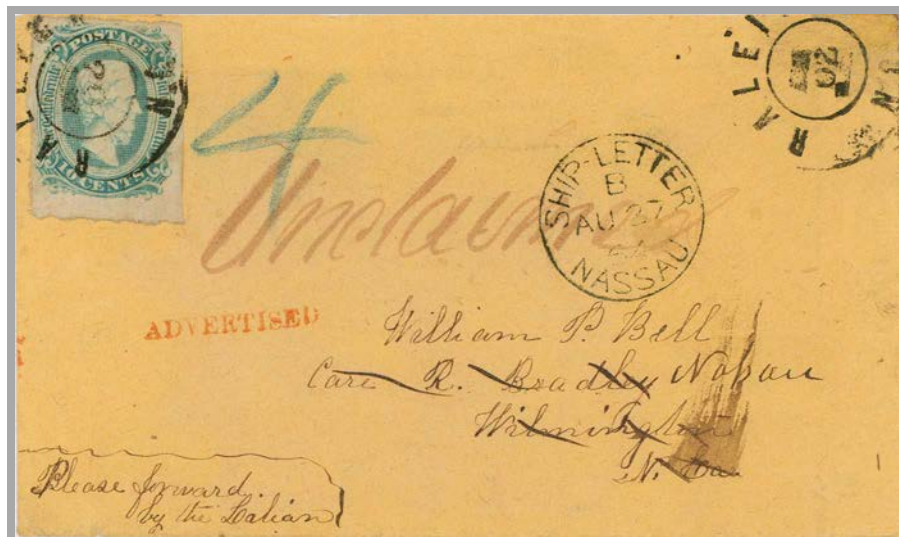 RALEIGH N.C.
POSTAGE
10 CENTS
RALEI
4
Unclaimed
SHIP-LETTER
B
AU 27
NASSAU
ADVERTISED
William P. Bell
Care R. Bradley Nassau
Wilmington
N. Ca.
Please forward
by the Lilian